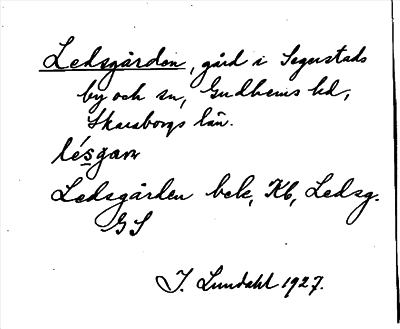 Ledsgården, gård i Segerstads
by och sn, Gudhems hd,
Skaraborgs län.
lésgan
Ledsgården bek, Kb, Ledsg.
GS
J. Lundahl 1927.